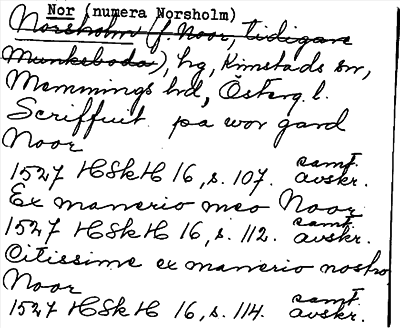 Nor (numera Norsholm)
Norsholm (f. Noor, tidigare
Munkeboda), hg, Kimstads sn,
Memmings hd, Österg. l.
Scriffuit pa wor gard
Noor
1527 HSkH 16, s. 107. samt. avskr.
Ex manerio meo Noor
1527 HSkH 16, s. 112. samt. avskr.
Citissime ex manerio nostro
Noor
1527 HSkH 16, s. 114. samt. avskr.